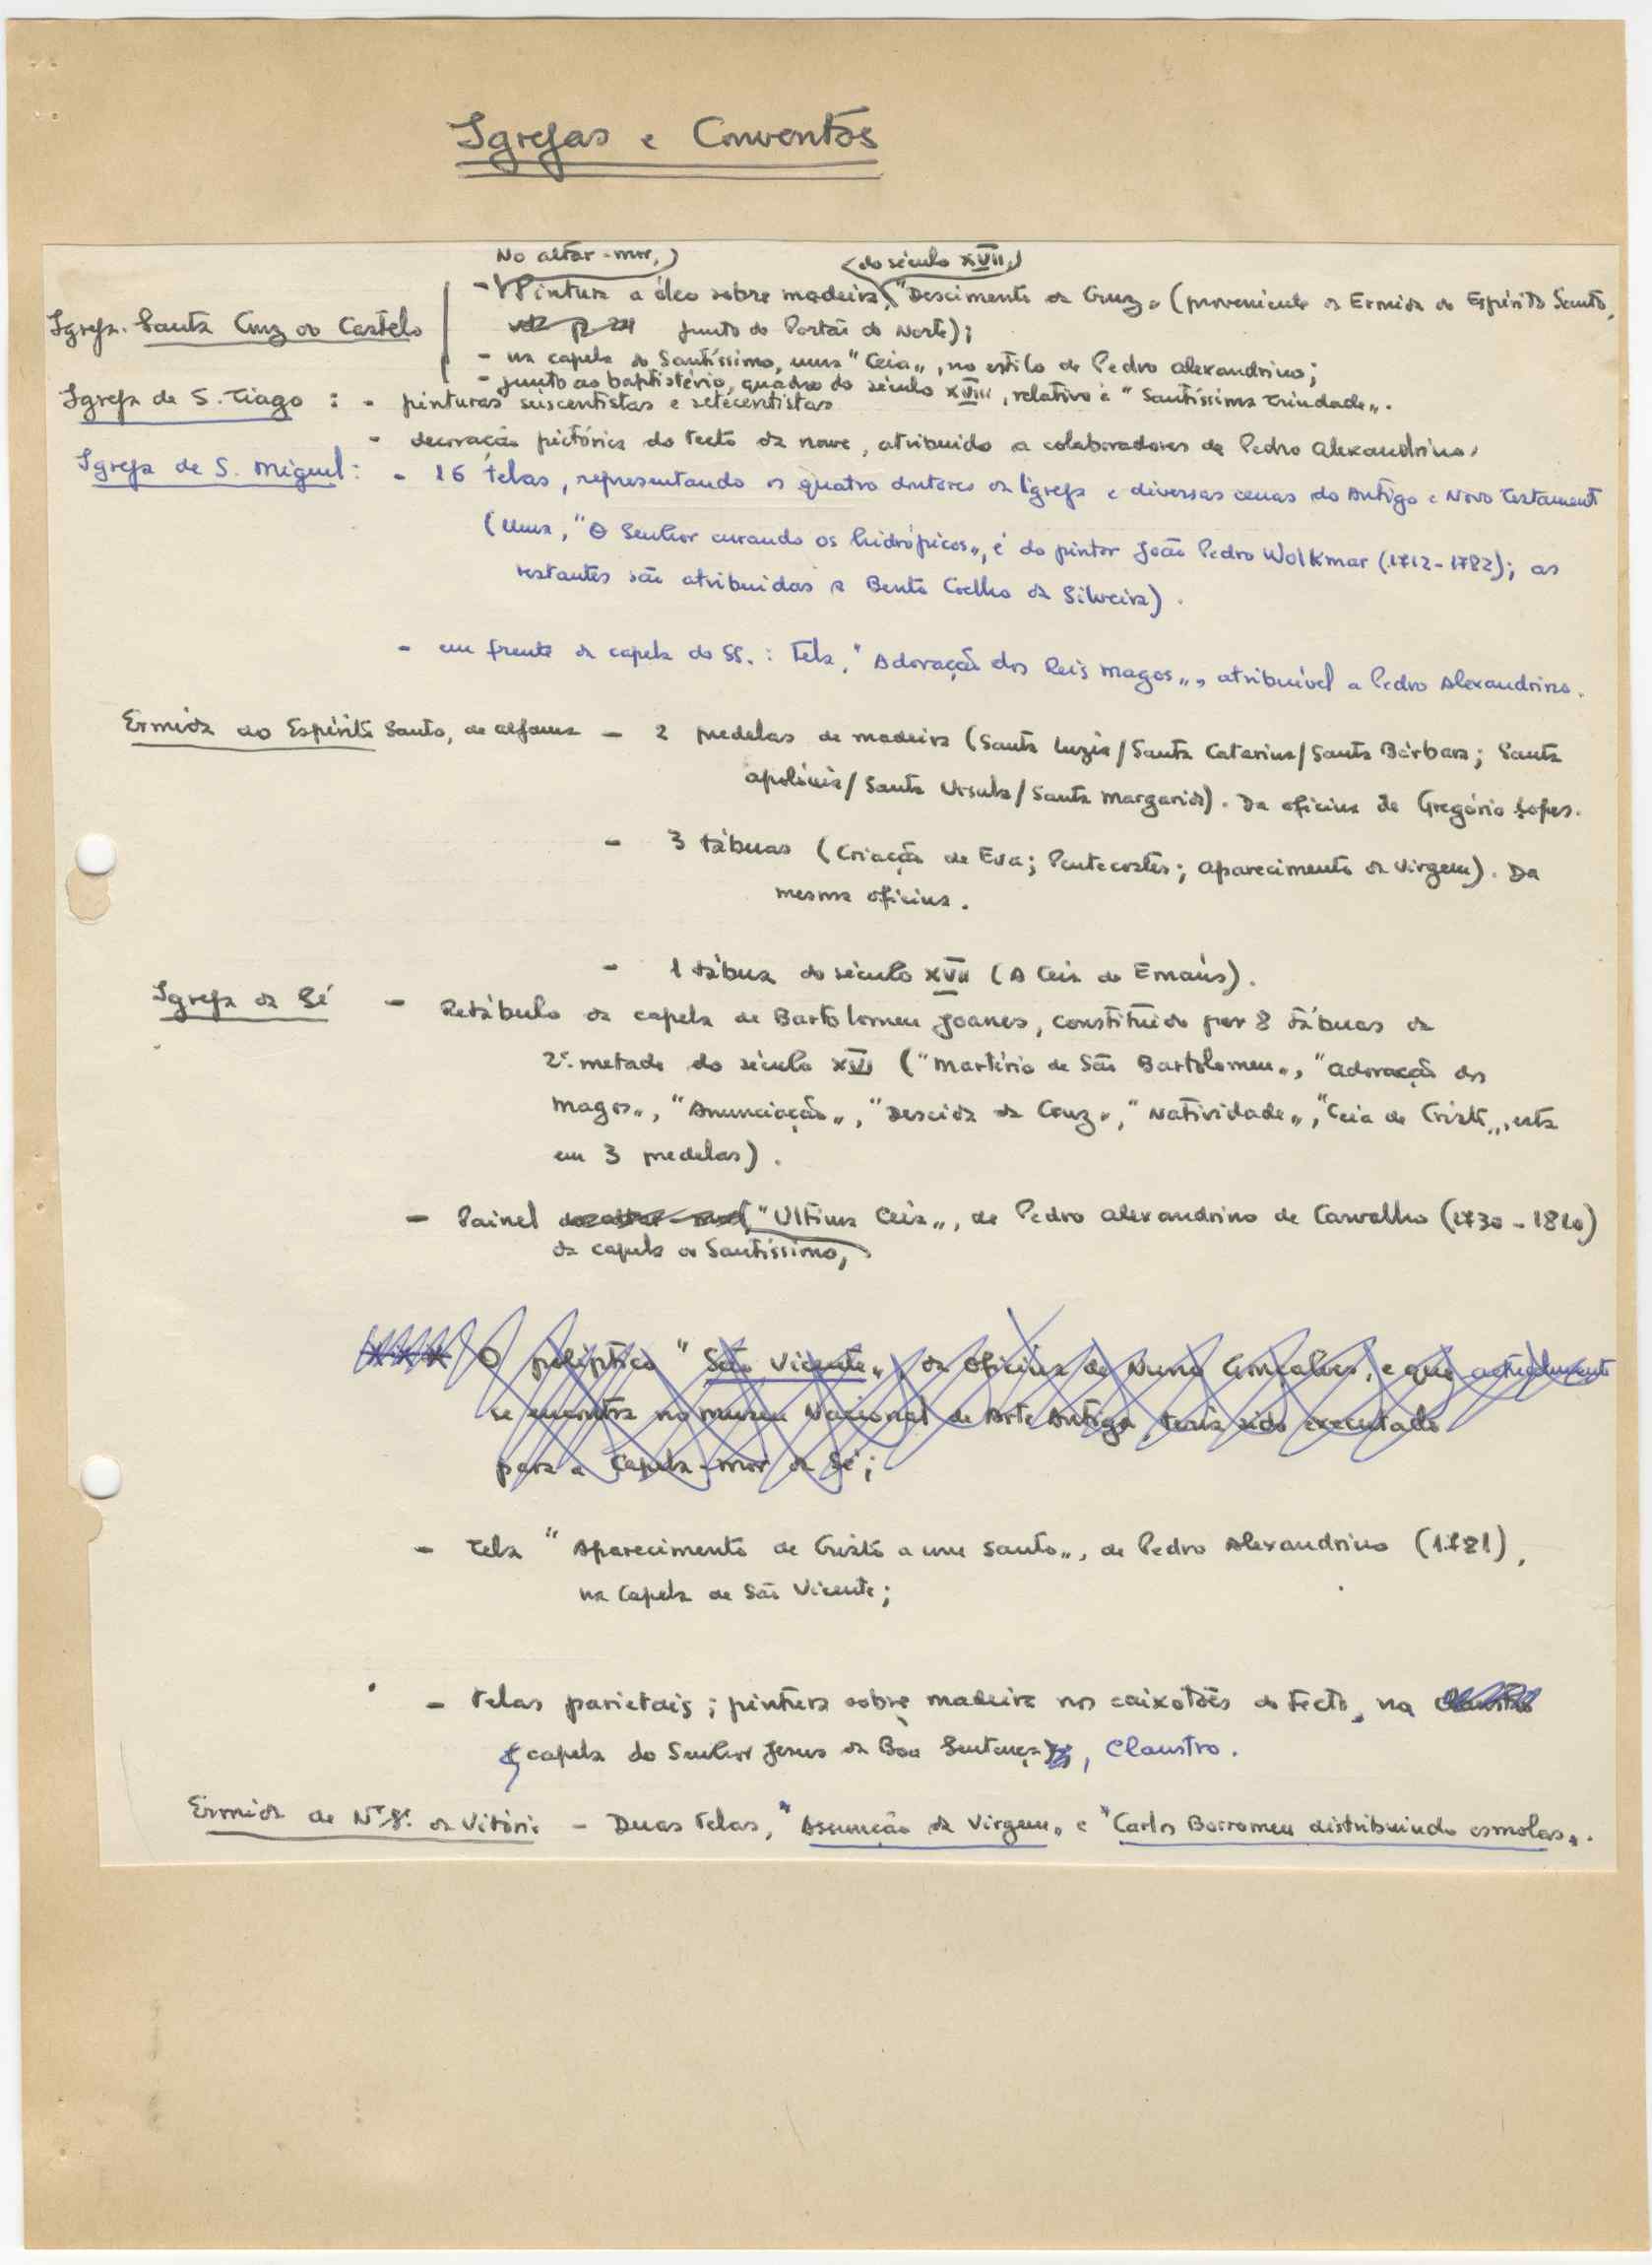 Igrejas e Conventos
No altar-mor, do século XVII,
Igreja Santa Cruz do Castelo - Pintura a óleo sobre madeira "Descimento da Cruz" (proveniente da Ermida do Espírito Santo,
junto do Portão do Norte);
- na capela do Santíssimo, uma "Ceia", no estilo de Pedro Alexandrino;
- junto ao baptistério, quadro do século XVIII, relativo à "Santíssima Trindade".
Igreja de S. Tiago : - pinturas seiscentistas e setecentistas
- decoração pictórica do tecto da nave, atribuido a colaboradores de Pedro Alexandrino.
Igreja de S. Miguel: - 16 telas, representando os quatro doutores da Igreja e diversas cenas do Antigo e Novo Testament
(Uma, "O Senhor curando os hidrópicos", é do pintor João Pedro Wolkmar (1712-1782); as
restantes são atribuidas a Bento Coelho da Silveira).
- em frente da capela do SS. : Tela, "Adoração dos Reis Magos", atribuível a Pedro Alexandrino.
Ermida do Espírito Santo, de Alfama - 2 predelas de madeira (Santa Luzia/Santa Catarina/Santa Bárbara; Santa
Apolónia/Santa Úrsula/Santa Margarida). Da oficina de Gregório Lopes.
- 3 tábuas (Criação de Eva; Pentecostes; Aparecimento da Virgem). Da
mesma oficina.
- 1 tábua do século XVII (A Ceia de Emaús).
Igreja da Sé - Retábulo da capela de Bartolomeu Joanes, constituído por 8 tábuas da
2ª. metade do século XVI ("Martírio de São Bartolomeu", "Adoração dos
Magos", "Anunciação", "Descida da Cruz", "Natividade", "Ceia de Cristo", esta
em 3 predelas).
- Painel do altar-mor, "Ultima Ceia", de Pedro Alexandrino de Carvalho (1730-1810)
da capela do Santíssimo,
O políptico "São Vicente", da oficina de Nuno Gonçalves, e que actualmente
se encontra no Museu Nacional de Arte Antiga, teria sido executado
para a Capela-mor da Sé;
- Tela "Aparecimento de Cristo a um Santo", de Pedro Alexandrino (1781),
na Capela de São Vicente;
- Telas parietais; pintura sobre madeira nos caixotões do tecto, na Claustro
capela do Senhor Jesus da Boa Sentença, Claustro.
Ermida de Nª Sª. da Vitória - Duas telas, "Assunção da Virgem" e "Carlos Borromeu distribuindo esmolas".